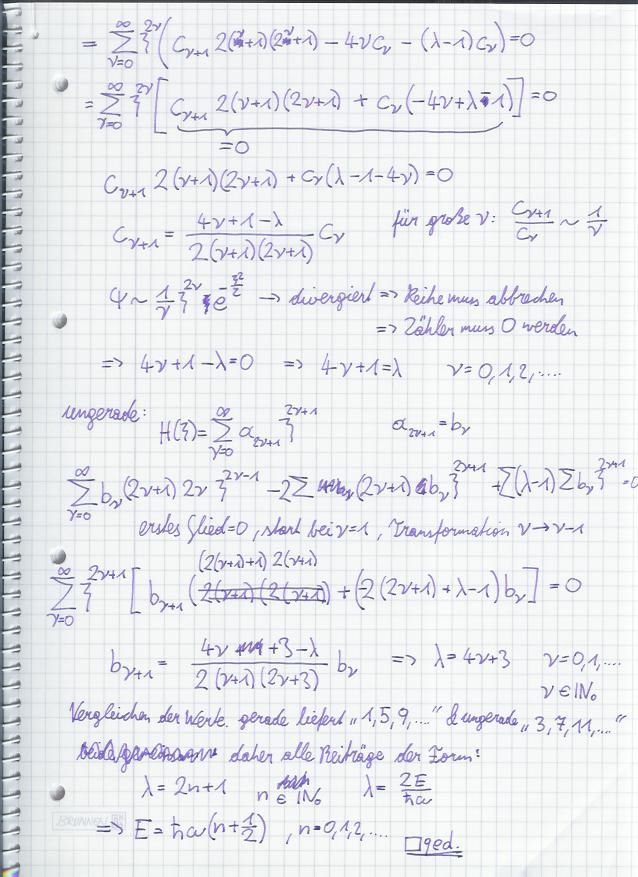 = ∑_{ν=0}^{∞} ξ^{2ν} (C_{ν+1} 2(ν+1)(2ν+1) - 4νC_ν - (λ-1)C_ν) = 0
= ∑_{ν=0}^{∞} ξ^{2ν} [C_{ν+1} 2(ν+1)(2ν+1) + C_ν(-4ν+λ-1)] = 0
=0
C_{ν+1} 2(ν+1)(2ν+1) + C_ν(λ-1-4ν) = 0
C_{ν+1} = \frac{4ν+1-λ}{2(ν+1)(2ν+1)} C_ν für große ν: \frac{C_{ν+1}}{C_ν} ~ \frac{1}{ν}
Ψ ~ \frac{1}{ν} ξ^{2ν} e^{-\frac{ξ²}{2}} → divergiert => Reihe muss abbrechen
=> Zähler muss 0 werden
=> 4ν+1-λ=0 => 4ν+1=λ ν=0,1,2,....
ungerade: H(ξ) = ∑_{ν=0}^{∞} a_{2ν+1} ξ^{2ν+1} a_{2ν+1} = b_ν
∑_{ν=0}^{∞} b_ν(2ν+1) 2ν ξ^{2ν-1} - 2∑ (2ν+1) b_ν ξ^{2ν+1} + (λ-1) ∑ b_ν ξ^{2ν+1} = 0
erstes Glied=0, start bei ν=1, Transformation ν→ν-1
(2(ν+1)+1) 2(ν+1)
∑_{ν=0}^{∞} ξ^{2ν+1} [b_{ν+1} (2(ν+1)(2(ν+1)) + (-2(2ν+1)+λ-1) b_ν] = 0
b_{ν+1} = \frac{4ν+3-λ}{2(ν+1)(2ν+3)} b_ν => λ=4ν+3 ν=0,1,....
ν∈ℕ₀
Vergleichen der Werte. gerade liefert „1,5,9,....“ & ungerade „3,7,11,....“
daher alle Beiträge der Form:
λ = 2n+1 n ∈ ℕ₀ λ = \frac{2E}{ħω}
=> E = ħω(n+\frac{1}{2}) , n=0,1,2,....
□ qed.
BRUNNEN